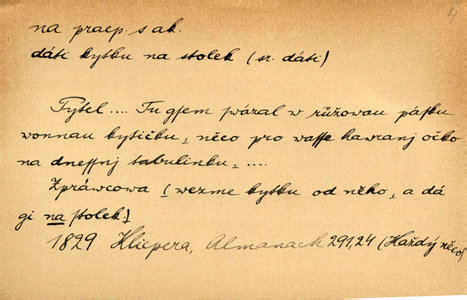 4
na praep. s ak.
dáti kytku na stolek (sr. dáti)
Pytel .... Tu gsem swázal w růžowau pásku
wonnau kytičku, něco pro wasse hawranj očko
na dnessnj tabulinku, ....
Zpráwcowa [wezme kytku od něho, a dá
gi na stolek.]
1829 Klicpera, Almanach 291,24 (Každý něco)